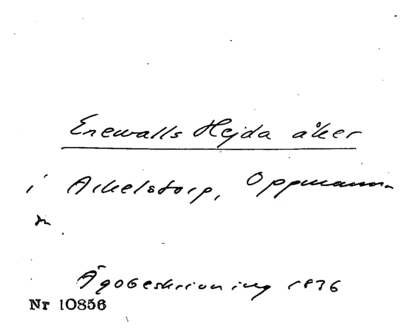 Enewalls Hejda åker
i Arkelstorp, Oppmanna-
Ägobeskrivning 1876
Nr 10856